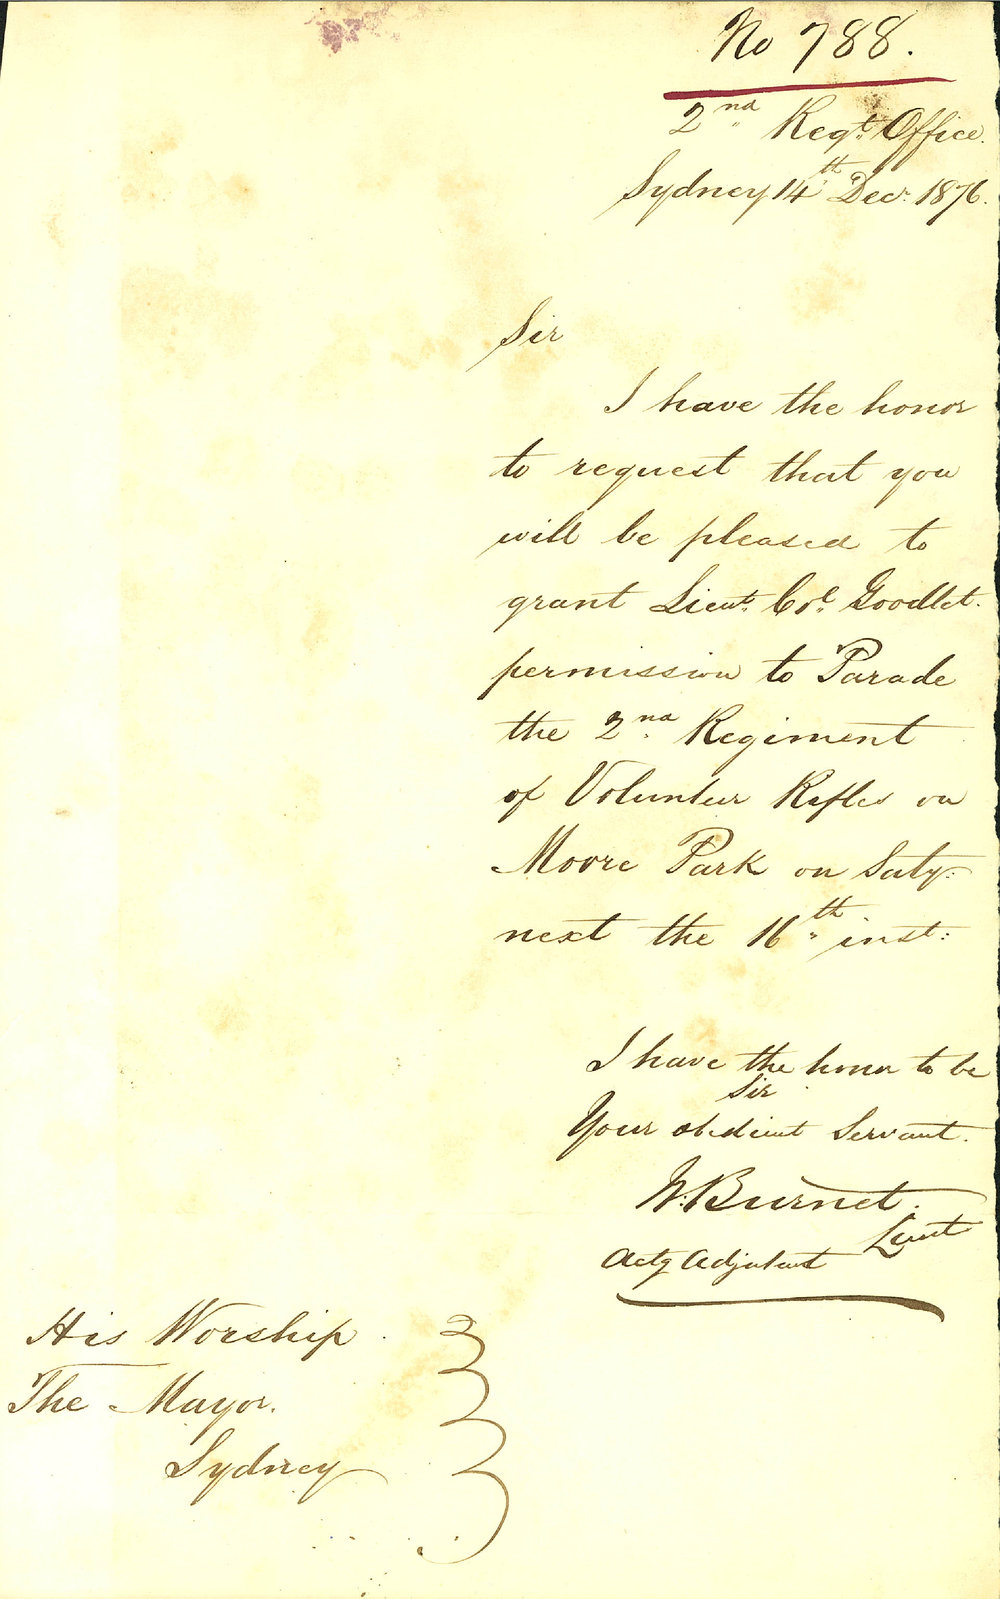 No 788.
2nd Regt. Office.
Sydney 14th Decr. 1876.
Sir
I have the honor
to request that you
will be pleased to
grant Lieut. Col. Goodlet.
permission to Parade
the 2nd. Regiment
of Volunteer Rifles on
Moore Park on Saty:
next the 16th inst:
I have the honor to be
Sir
Your obedient Servant.
W. Burnet.
Lieut
Actg Adjutant
His Worship
The Mayor.
Sydney